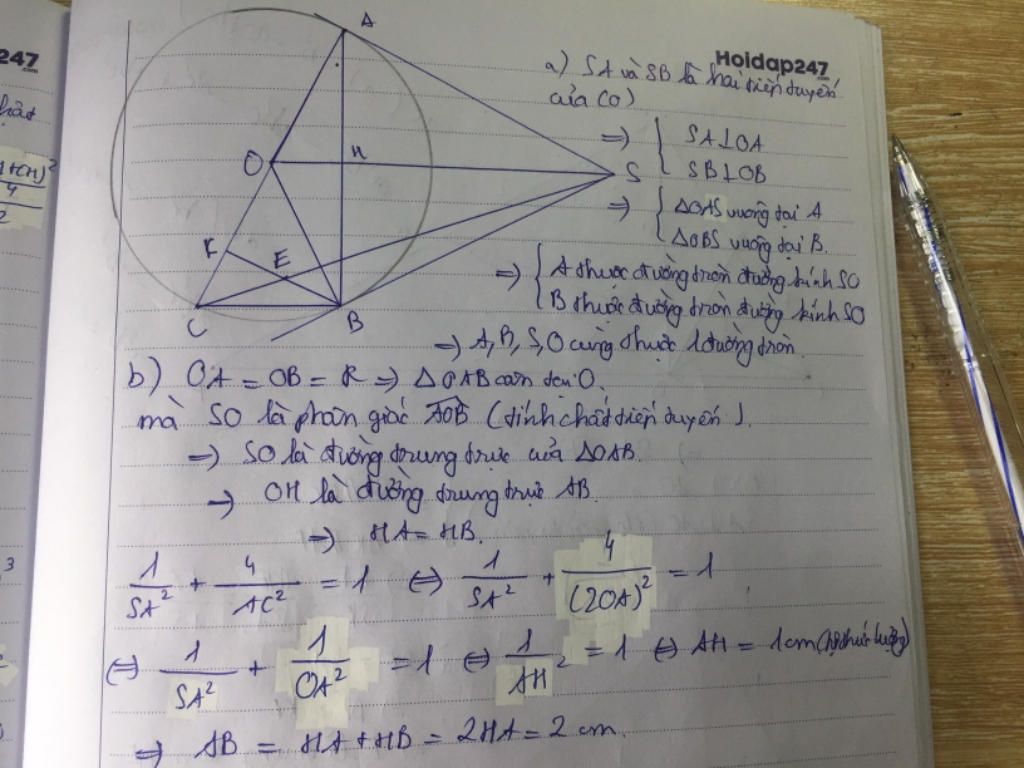 247
.com
Hoidap247
.com
a) SA và SB là hai tiếp tuyến
của (O)
=> { SA⊥OA
SB⊥OB
=> { ΔOAS vuông tại A
ΔOBS vuông tại B.
=> { A thuộc đường tròn đường kính SO
B thuộc đường tròn đường kính SO
=> A, B, S, O cùng thuộc 1 đường tròn.
A
O
H
S
K
E
C
B
b) OA = OB = R => ΔOAB cân tại O.
mà SO là phân giác AOB (tính chất tiếp tuyến).
=> SO là đường trung trực của ΔOAB.
=> OH là đường trung trực AB.
=> HA = HB.
1/SA² + 4/AC² = 1 <=> 1/SA² + 4/(2OA)² = 1
<=> 1/SA² + 1/OA² = 1 <=> 1/AH² = 1 <=> AH = 1cm (hệ thức lượng)
=> AB = HA + HB = 2HA = 2 cm.